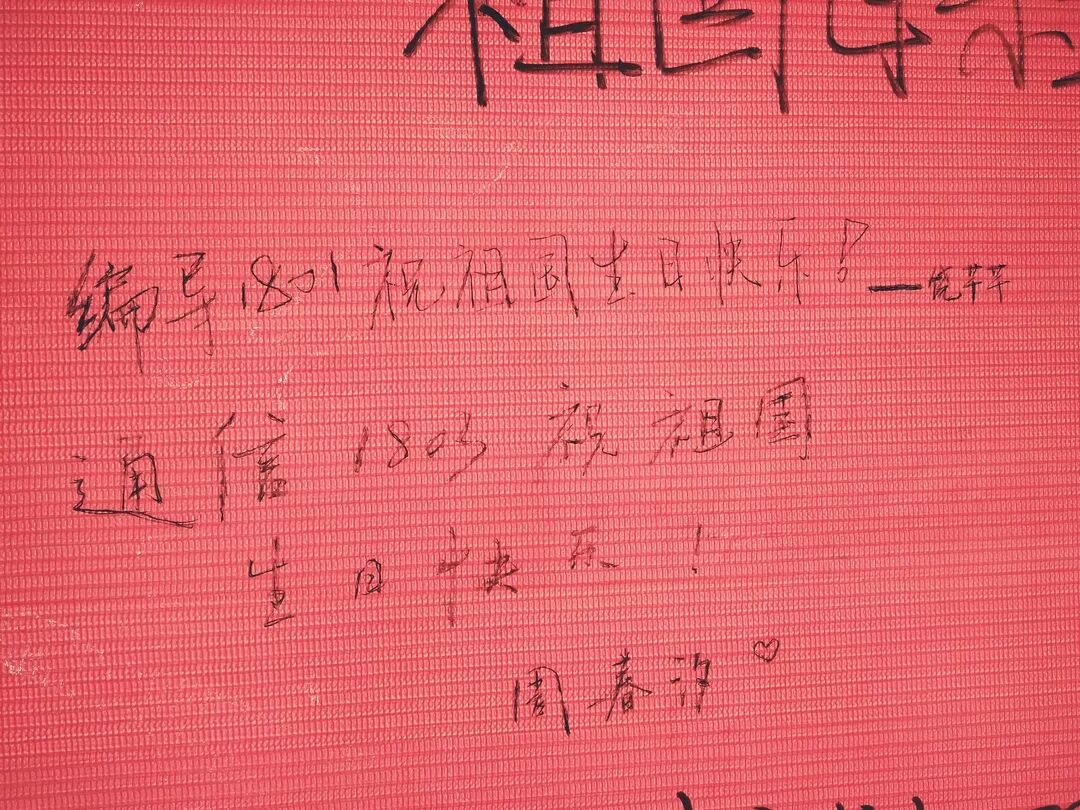 祖国母亲
编导1801祝祖国生日快乐!——饶芊芊
通信1803祝祖国
生日快乐!
周春汐♡